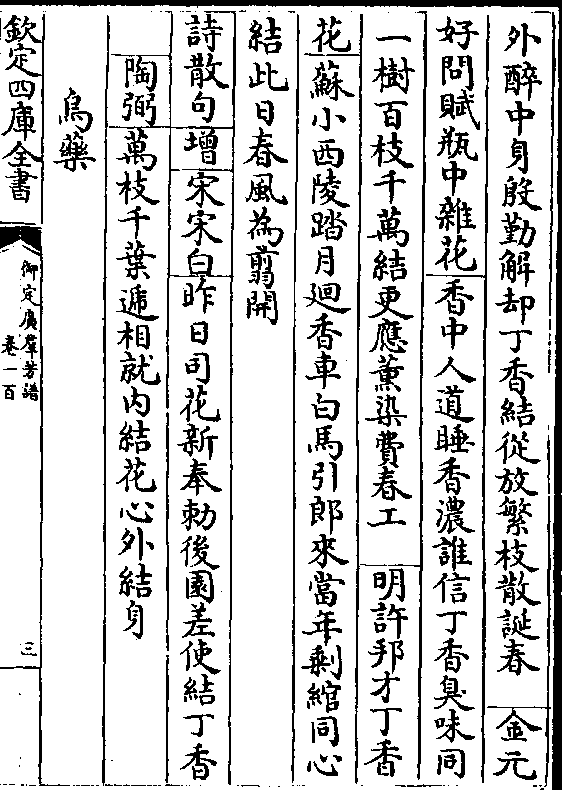 外醉中身殷勤解却丁香結從放繁枝散誕春　金元
好問賦瓶中雜花香中人道睡香濃誰信丁香臭味同
一樹百枝千萬結更應薰染費春工　明許邦才丁香
花蘇小西陵踏月廻香車白馬引郎來當年剩綰同心
結此日春風為翦開
詩散句增宋宋白昨日司花新奉勅後園差使結丁香
陶弼萬枝千葉遞相就内結花心外結身
烏藥
欽定四庫全書
御定廣羣芳譜
卷一百
三